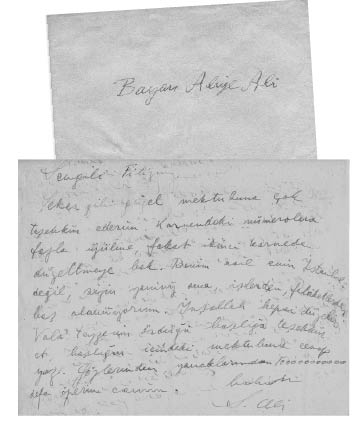 Bayan Aliye Ali
Sevgili Filizim
Şeker gibi güzel mektubuna çok
teşekkür ederim Karnendeki numerolara
fazla üzülme, fakat ikinci karnede
düzeltmeye bak. Benim asıl canım İstanbulda
değil, sizin yanınız ama, işlerden,
baş alamıyorum. İnşallah hepsi düzelir.
Vala teyzenin ördüğü başlığa teşekkür
et, başlığın içindeki mektubuna cevap
yaz. Gözlerinden yanaklarından 10000000000
defa öperim canım.
babası
S. Ali